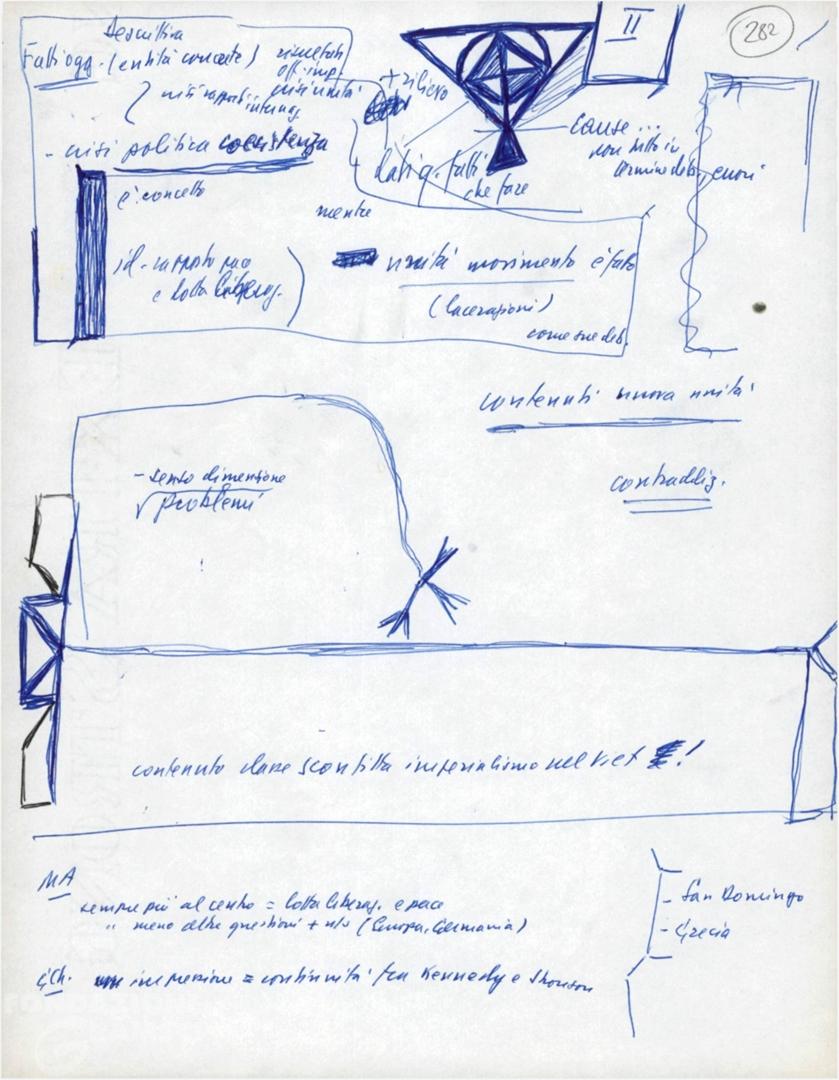 282
II
descrittiva
Fatti ogg. (entità concrete) risultati
off. imp.
crisi unità
crisi rapporti internaz.
+ rilievo
- crisi politica coesistenza
cause ...
non sitto in
termine deb.
dati q. fatti
che fare
è concetto
mentre
id - rapporto pace
e lotta liberaz.
unità movimento è fatto
(lacerazioni)
come sue deb.
contenuti nuova unità
- senso dimensione
problemi
contraddiz.
contenuto classe sconfitta imperialismo nel Viet !
MA
sempre più al centro = lotta liberaz. e pace
" meno altre questioni + (Europa, Germania)
- San Domingo
- Grecia
imperialismo = continuità fra Kennedy e Jhonson